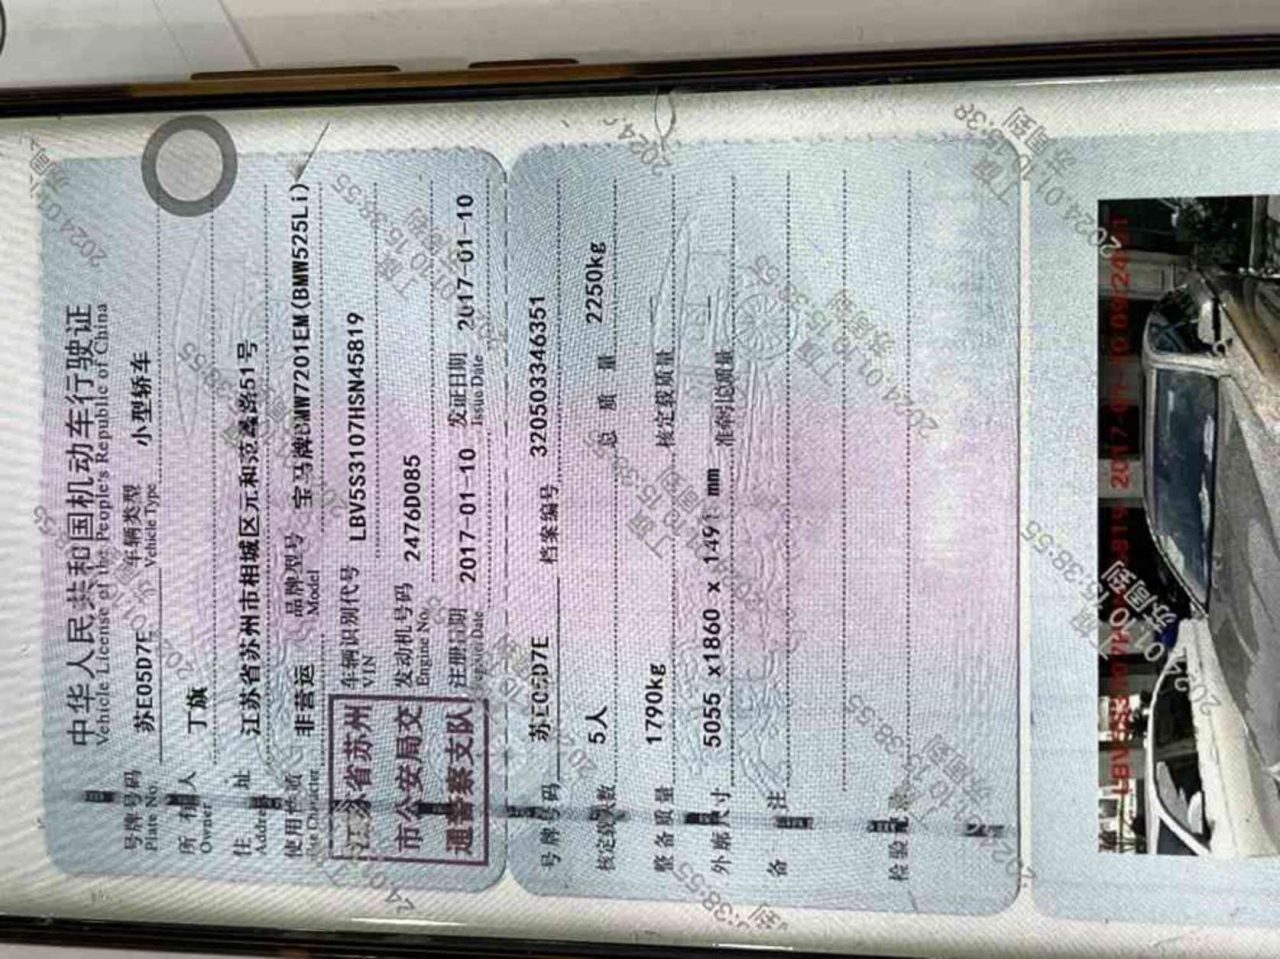 中华人民共和国机动车行驶证
Vehicle License of the People's Republic of China
号牌号码 苏E05D7E 车辆类型 小型轿车
Plate No. Vehicle Type
所有人 丁旗
Owner
住址 江苏省苏州市相城区元和范蠡路51号
Address
使用性质 非营运 品牌型号 宝马牌BMW7201EM(BMW525Li)
Use Character Model
江苏省苏州
市公安局交
通警察支队
车辆识别代号 LBV5S3107HSN45819
VIN
发动机号码 2476D085
Engine No.
注册日期 2017-01-10 发证日期 2017-01-10
Register Date Issue Date
号牌号码 苏E05D7E 档案编号 320503346351
核定载人数 5人 总质量 2250kg
整备质量 1790kg 核定载质量
外廓尺寸 5055 x1860 x 1491 mm 准牵引总质量
备注
检验记录
丁旗
2024.01.10 15:38:55
苏周到